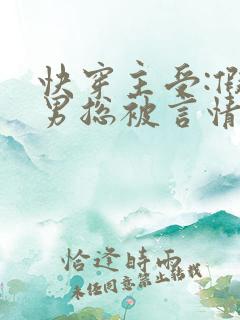 快穿主受:假
男捴被言情
恰逢時雨
未经同意禁止转载